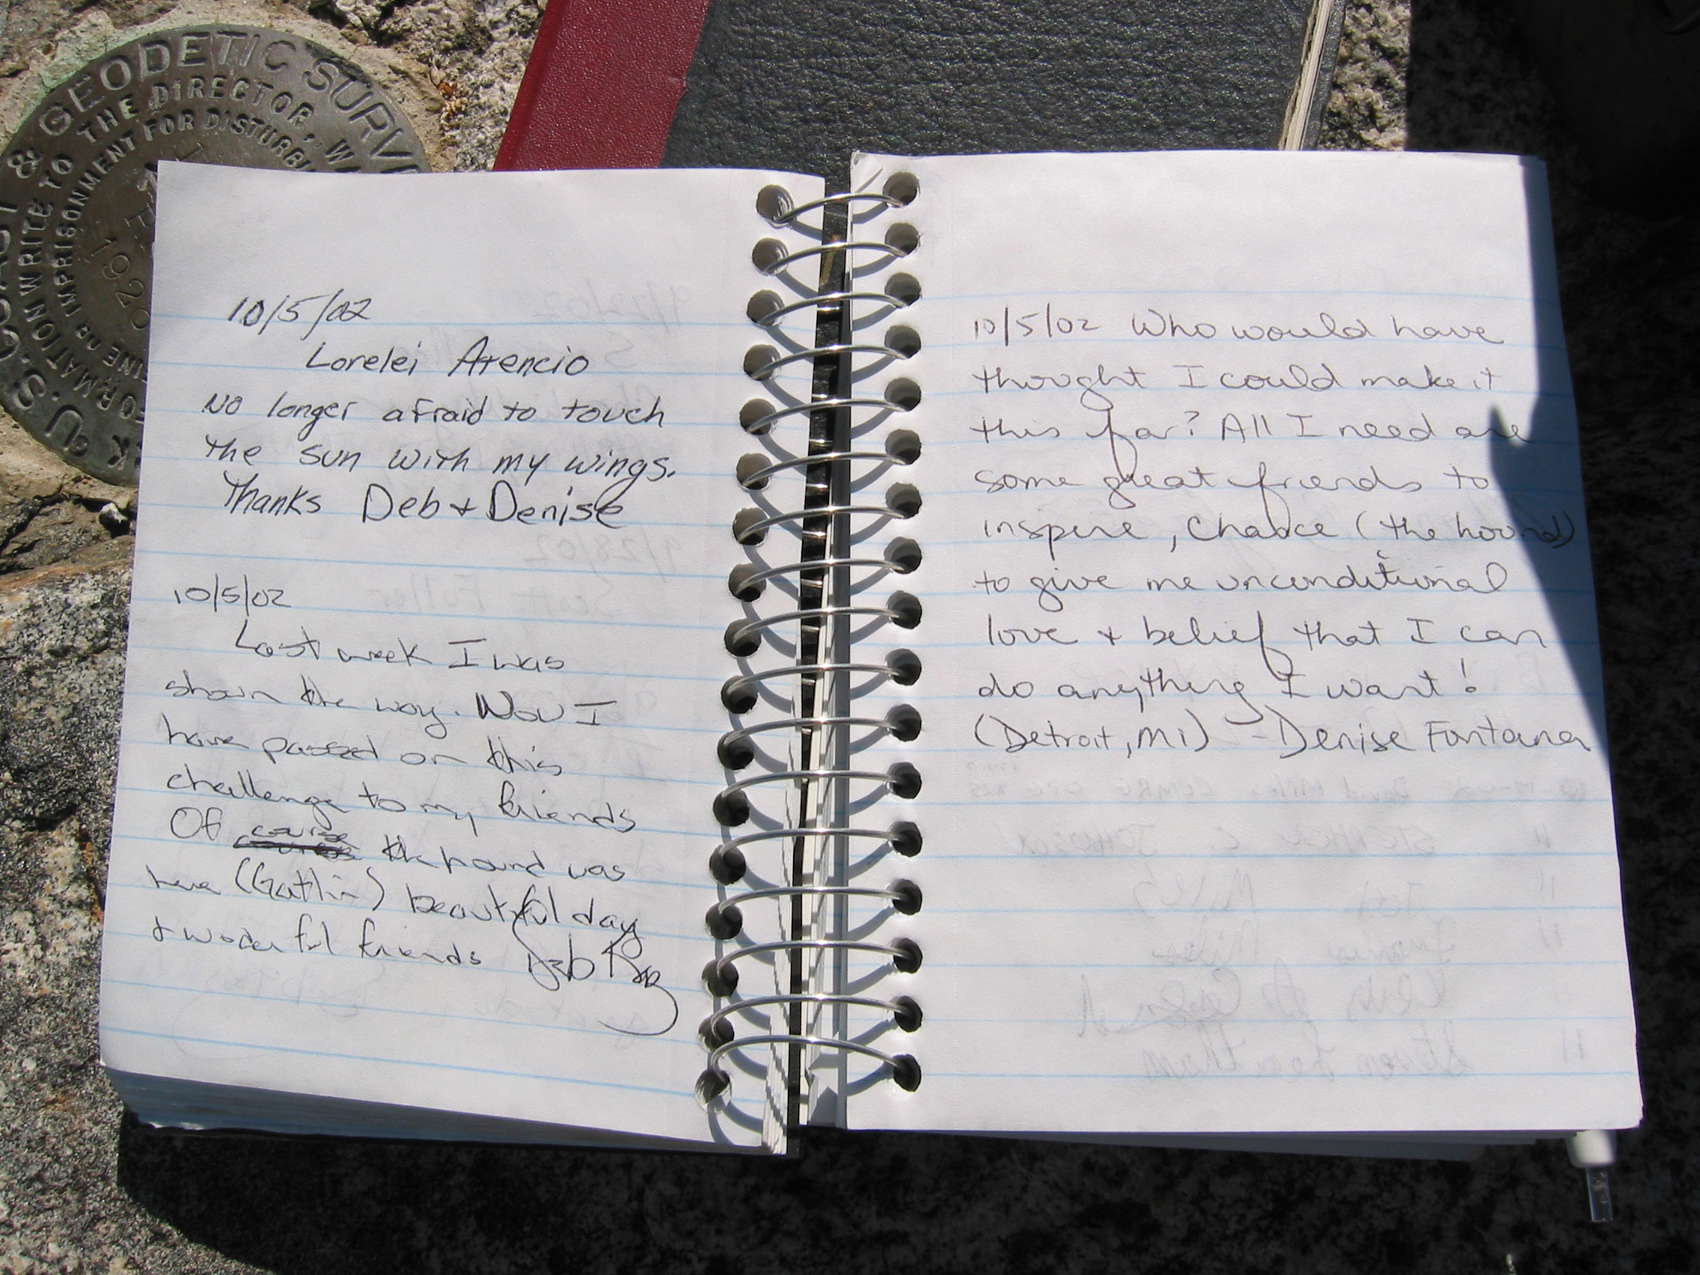 U.S. COAST & GEODETIC SURVEY
WRITE TO THE DIRECTOR, WA
FORMATION
FINE OR IMPRISONMENT FOR DISTURBI
1920
10/5/02
Lorelei Atencio
No longer afraid to touch
the sun with my wings.
Thanks Deb & Denise
10/5/02
Last week I was
shown the way. Now I
have passed on this
challenge to my friends
Of course the hound was
here (Gatlin) beautiful day
& wonderful friends Deb
10/5/02 Who would have
thought I could make it
this far? All I need are
some great friends to
inspire, Chance (the hound)
to give me unconditional
love & belief that I can
do anything I want!
(Detroit, MI) - Denise Fontana